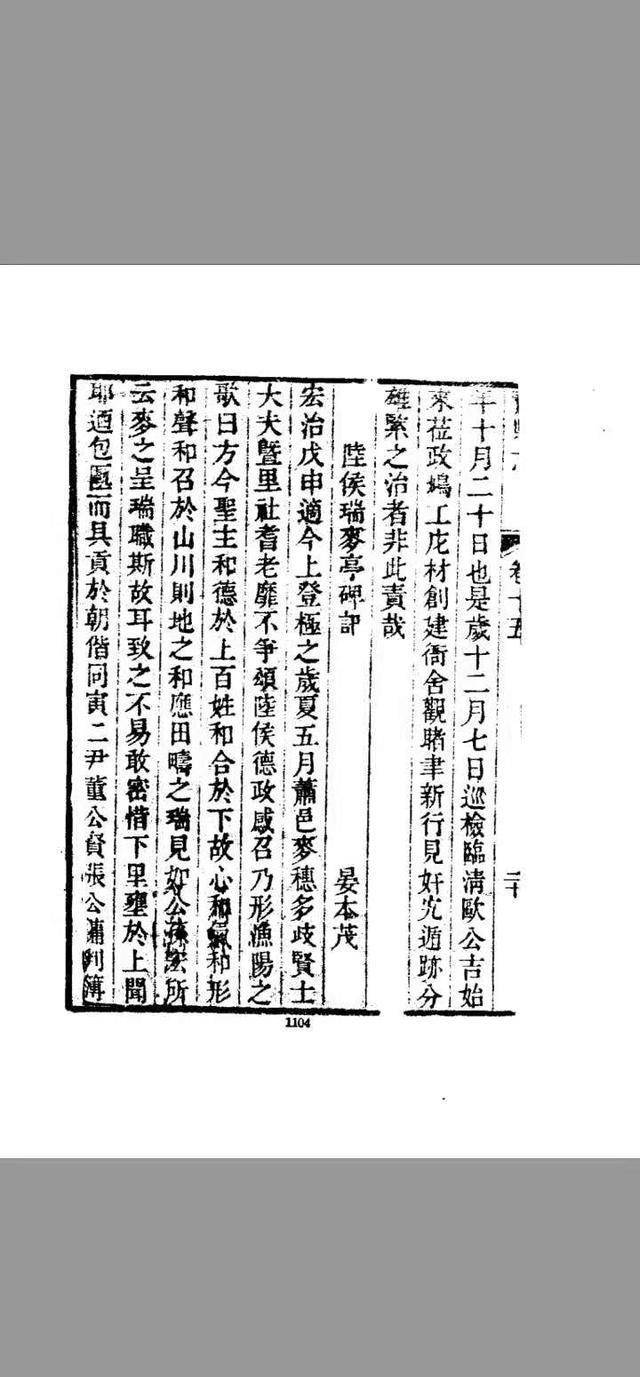 卷十五
二十
年十月二十日也是歲十二月七日巡檢臨淸歐公吉始
來莅政鳩工庀材創建衙舍觀睹聿新行見奸宄遁跡分
雄緊之治者非此責哉
陸侯瑞麥亭碑記 晏本茂
宏治戊申適今上登極之歲夏五月蕭邑麥穗多歧賢士
大夫曁里社耆老靡不爭頌陸侯德政感召乃形漁陽之
歌曰方今聖主和德於上百姓和合於下故心和氣和形
和聲和召於山川則地之和應田疇之瑞見如公孫宏所
云麥之呈瑞職斯故耳致之不易敢密惜下里壅於上聞
耶廼包匭而具貢於朝偕同寅二尹董公賢張公瀟判簿
1104